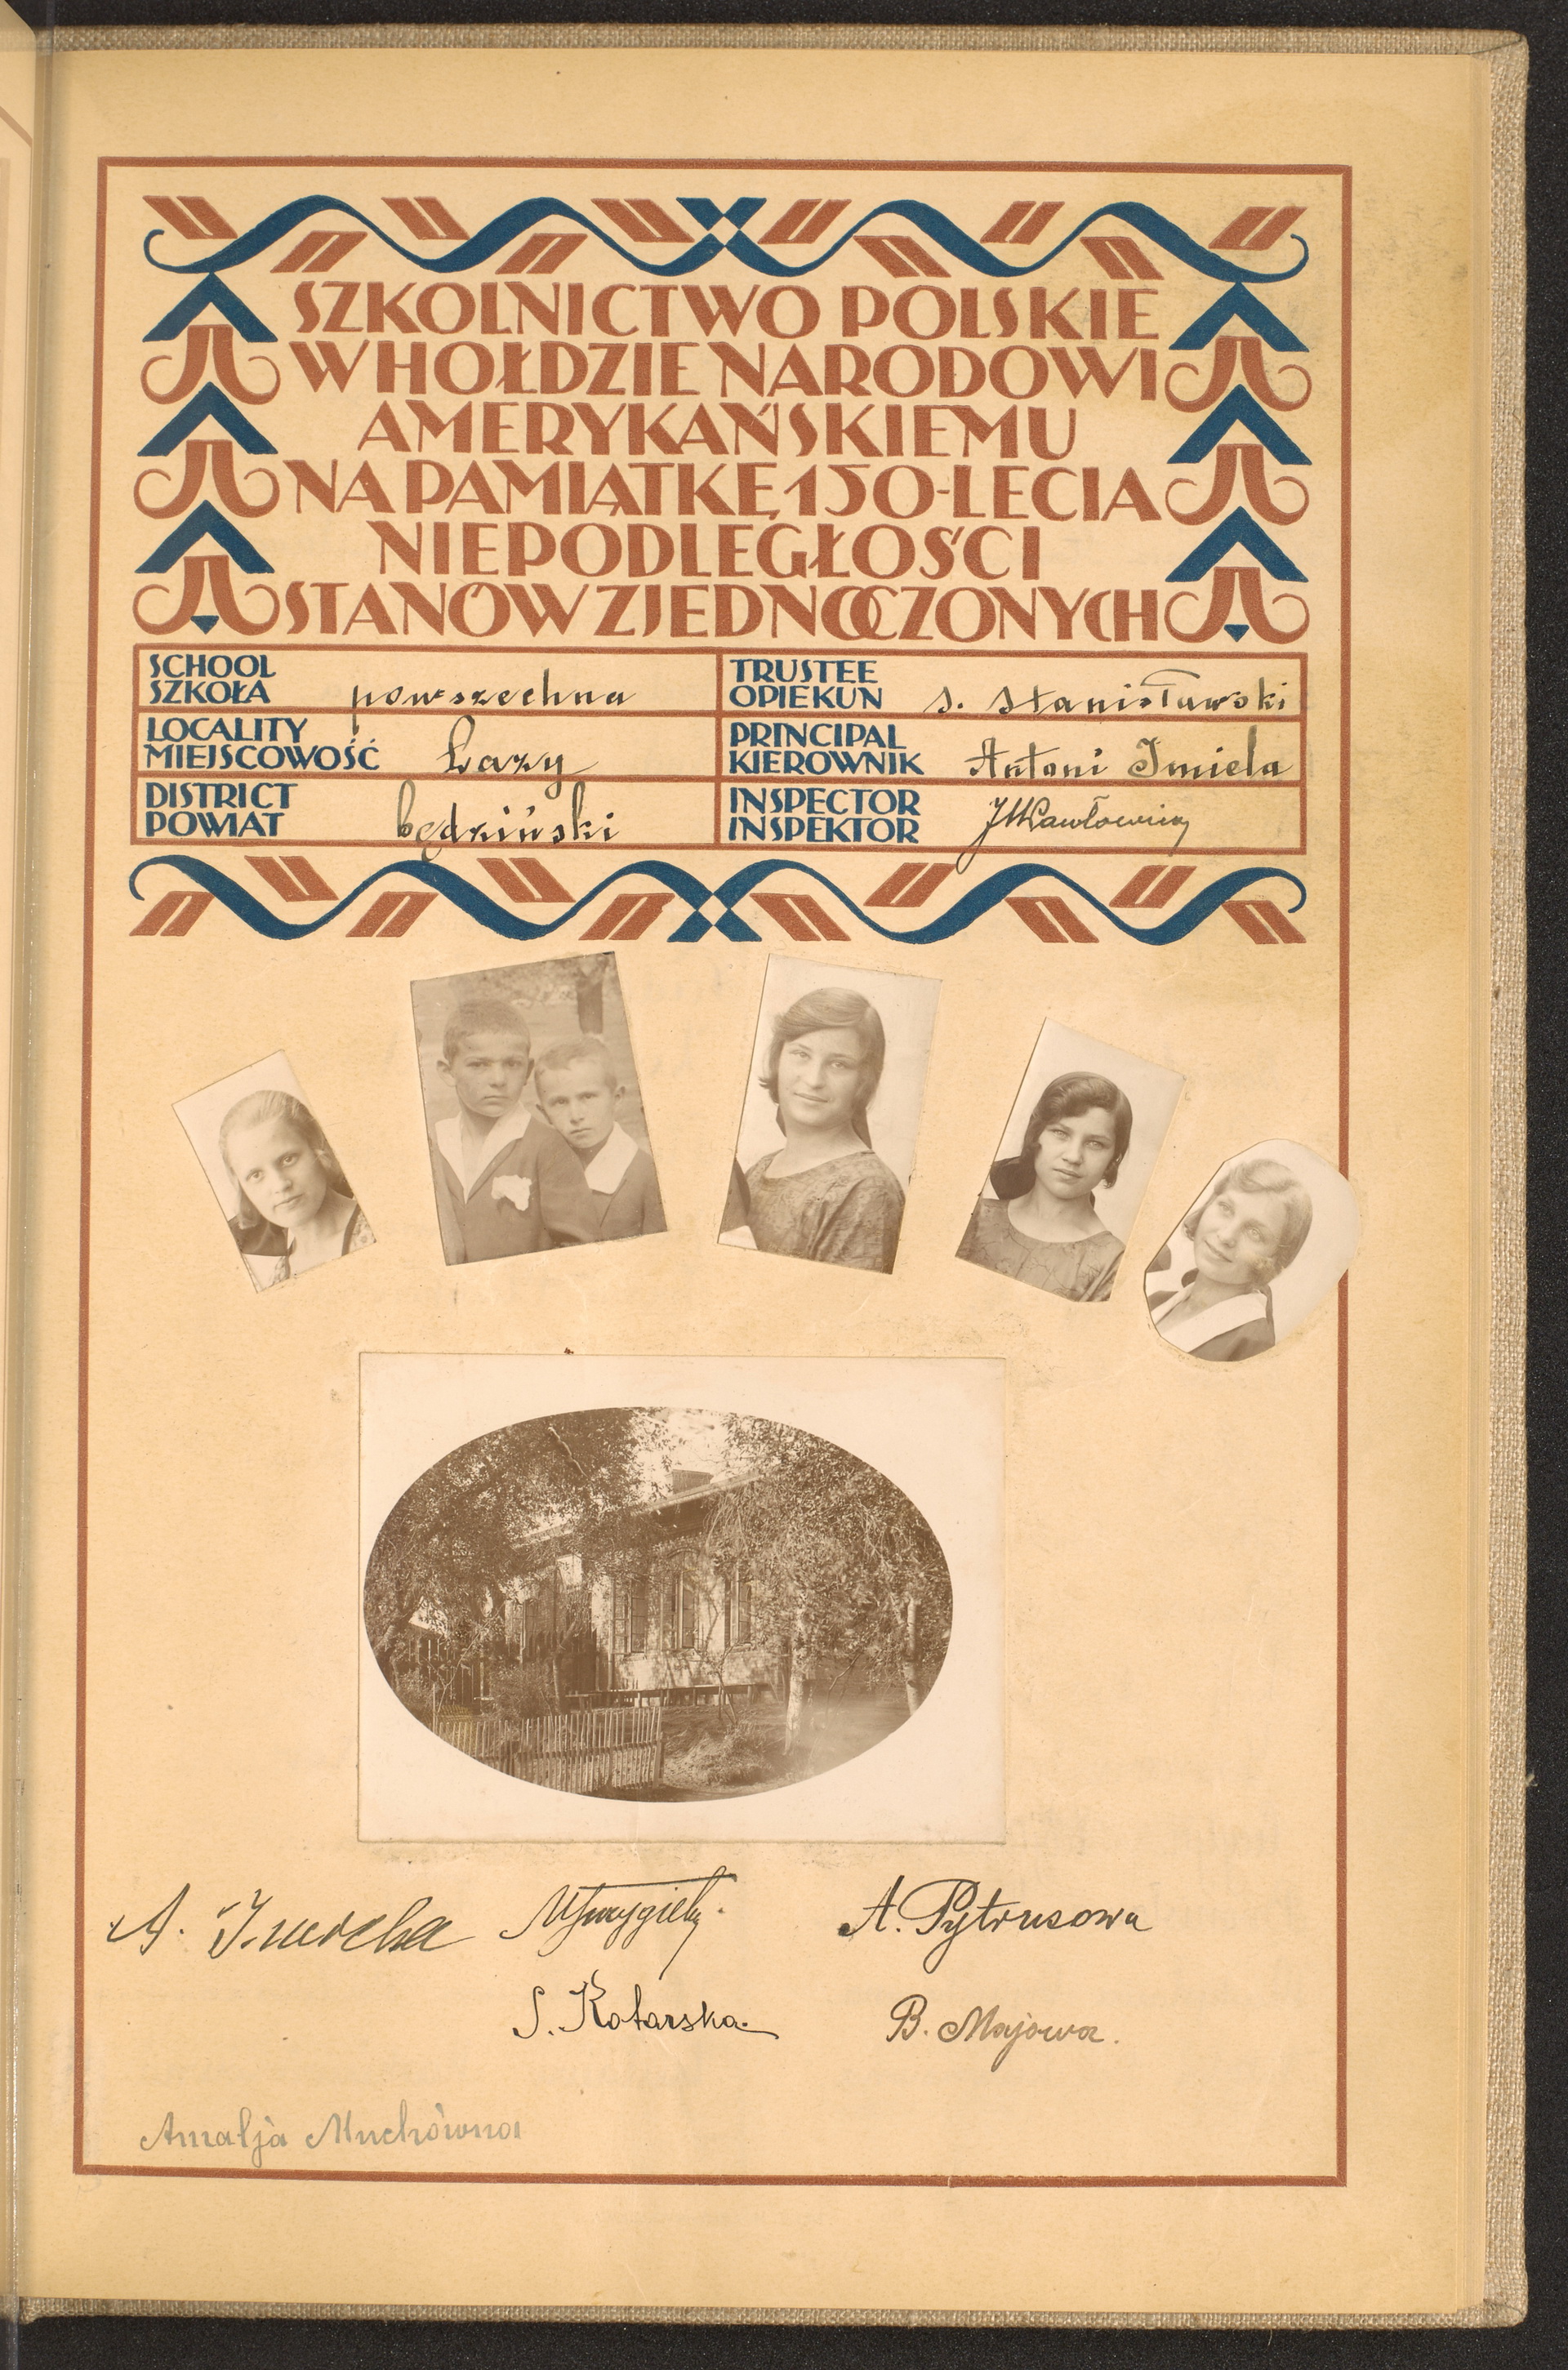 SZKOLNICTWO POLSKIE
W HOŁDZIE NARODOWI
AMERYKAŃSKIEMU
NA PAMIĄTKĘ 150-LECIA
NIEPODLEGŁOŚCI
STANÓW ZJEDNOCZONYCH
SCHOOL
SZKOŁA powszechna
TRUSTEE
OPIEKUN S. Stanisławski
LOCALITY
MIEJSCOWOŚĆ Łazy
PRINCIPAL
KIEROWNIK Antoni Imiela
DISTRICT
POWIAT będziński
INSPECTOR
INSPEKTOR
A. A. Pytrusowa
S. Kotarska
B. Majowa.
Amalja Muchówna